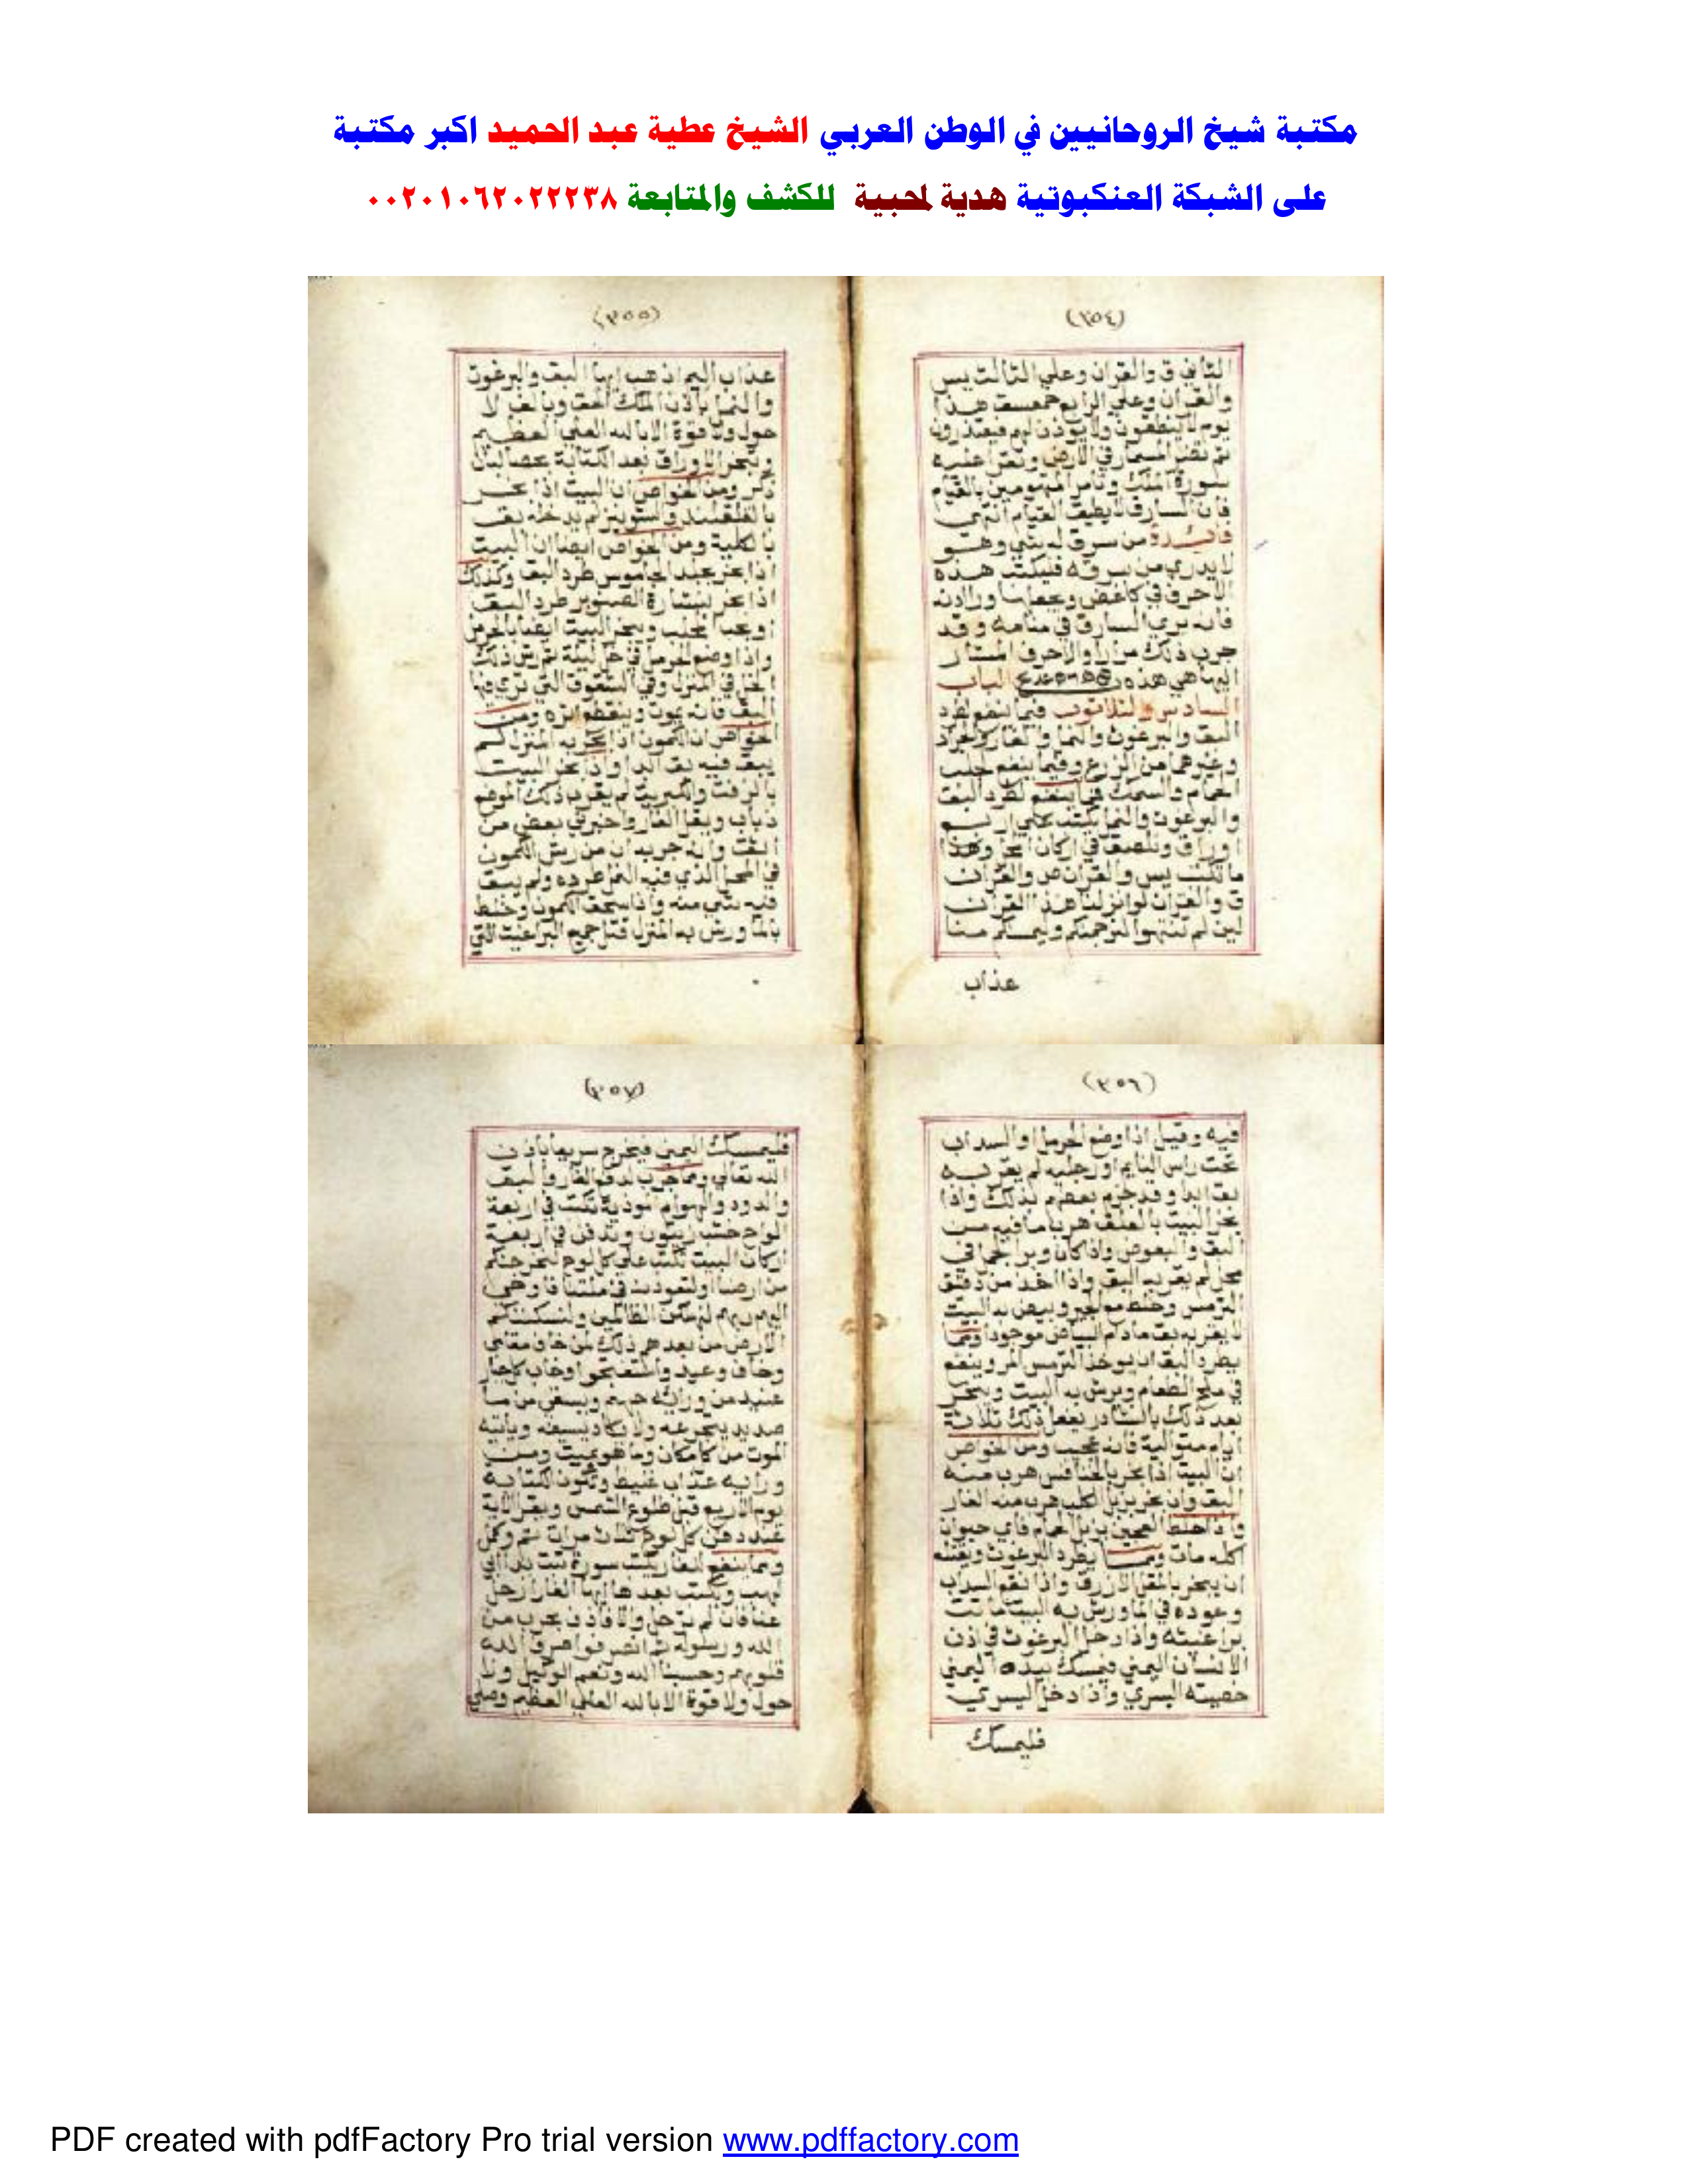 مكتبة شيخ الروحانيين في الوطن العربي الشيخ عطية عبد الحميد اكبر مكتبة
على الشبكة العنكبوتية هدية لمحبية للكشف والمتابعة ٠٠٢٠١٠٦٢٠٢٢٢٣٨
(٣٥٤)
الثاني ق والقران وعلي الثالث يس
والقران وعلي الرابع حمعسق هذا
يوم لا ينطقون ولا يوذن لهم فيعتذرون
ثم تضع المسمار في الارض وتقرا عليه
سورة الملك وتأمر المتهومين بالقيام
فان السارق لا يطيق القيام انتهي
فائدة من سرق له شي وهو
لا يدري من سرقه فيكتب هذه
الاحرف في كاغض ويجعلها
فانه يري السارق في منامه وقد
جرب ذلك مرارا والاحرف المشار
اليها هي هذه الباب
السادس والثلاثون فيما ينفع لطرد
البق والبرغوث والنمل والفار والجراد
وغيرهما من الزرع وفيما ينفع لجلب
الحمام والسمك فيما ينفع لطرد البق
والبرغوث والنمل يكتب علي اربع
اوراق وتلصق في اركان وهذا
ما تكتب يس والقران ص والقران
ق والقران لو انزلنا هذا القران
لين لم تنتهوا لنرجمنكم وليمسكم منا
عذاب
(٣٥٥)
عذاب اليم اذهب ايها البق والبرغوث
والنمل باذن الملك الحق وبالف لا
حول ولا قوة الا بالله العلي العظيم
وتبخر الاوراق بعد الكتابة بحصالبان
ذكر ومن الخواص ان البيت اذا بخر
بالقلقند والشونيز لم يدخله بق
بالكلية ومن الخواص ايضا ان البيت
اذا بخر بجلد الجاموس طرد البق وكذلك
اذا بخر بنشارة الصنوبر طرد البق
ويبخر البيت ايضا بالحرمل
واذا وضع الحرمل في خل ليلة ثم رش ذلك
الخل في المنزل وفي الشقوق التي تري فيها
البق فانه يموت وينقطع اثره ومن
الخواص ان الكمون اذا بخر به المنزل لم
يبق فيه بق ابدا واذا بخر البيت
بالزفت والكبريت لم يقرب ذلك الموضع
ذباب وبق الفار واخبرني بعض من
اثق وانه جرب ان من رش الكمون
في المحل الذي فيه النمل طرده ولم يبق
فيه شي منه واذا سحق الكمون وخلط
بالما ورش به المنزل قتل جميع البراغيت التي
(٣٥٦)
فيه وقيل اذا وضع الحرمل او السداب
تحت راس النايم او رجليه لم يقربه
بق ابدا وقد جزم بعضهم بذلك واذا
بخر البيت بالعلق هرب ما فيه من
البق والبعوض واذا كان وبر الجمل في
محل لم يقربه البق واذا اخذ من دقيق
الترمس وخلط مع الجير وبيض به البيت
لا يقربه بق ما دام البياض موجودا ومما
يطرد البق ان يوخذ الترمس المر وينقع
في ملح الطعام ويرش به البيت ويبخر
بعد ذلك بالشادر يفعل ذلك ثلاثة
ايام متوالية فانه عجيب ومن الخواص
ان البيت اذا بخر بالخنافس هرب منه
البق وان بخر بزبل الكلب هرب منه الفار
واذا خلط العجين بزبل الحمام فاي حيوان
اكله مات ومما يطرد البرغوث ويقتله
ان يبخر بالمقل الازرق واذا نقع السداب
وعوده في الما ورش به البيت ماتت
براغيته واذا دخل البرغوث في اذن
الانسان اليمني فيمسك بيده اليمني
خصيته اليسري واذا دخل اليسري
فليمسك
(٣٥٧)
فليمسك اليمني فيخرج سريعا باذن
الله تعالي ومما جرب لدفع الفار والبق
والدود والهوام الموذية تكتب في اربعة
الواح خشب زيتون وتدفن في اربعة
اركان البيت تكتب علي كل لوح لنخرجنكم
من ارضنا او لتعودن في ملتنا فاوحي
اليهم ربهم لنهلكن الظالمين ولنسكننكم
الارض من بعدهم ذلك لمن خاف مقامي
وخاف وعيد واستفتحوا وخاب كل جبار
عنيد من ورائه جهنم ويسقي من ما
صديد يتجرعه ولا يكاد يسيغه وياتيه
الموت من كل مكان وما هو بميت ومن
ورايه عذاب غليظ وتكون الكتابة
يوم الاربع قبل طلوع الشمس ويقرا الاية
عند دفن كل لوح ثلاث مرات
ومما ينفع الفار يكتب سورة تبت يدا ابي
لهب ويكتب بعدها ايها الفار ارحل
عنا فان لم ترحل والا فاذن بحرب من
الله ورسوله ثم انصرفوا صرف الله
قلوبهم وحسبنا الله ونعم الوكيل ولا
حول ولا قوة الا بالله العلي العظيم وصلي
PDF created with pdfFactory Pro trial version www.pdffactory.com